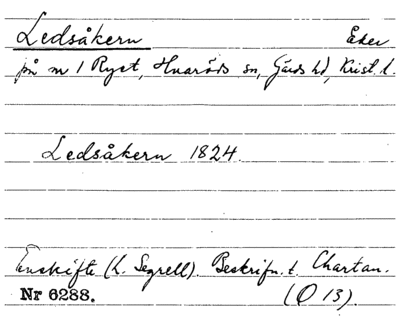 Ledsåkern Åker
på n 1 Ryet, Huaröds sn, Gärds hd, Krist. l.
Ledsåkern 1824.
Enskifte (L. Segrell). Beskrifn. t. Chartan.
Nr 6288. (O 13).